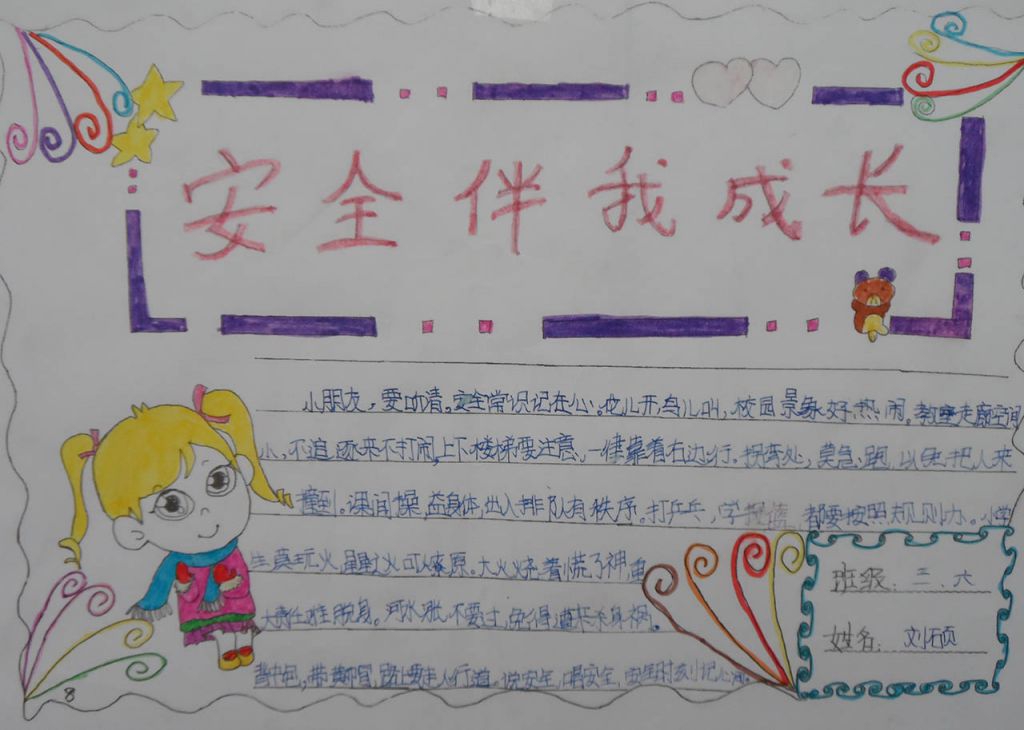 安全伴我成长
小朋友，要听清。安全常识记在心。花儿开，鸟儿叫，校园景象好热闹。教室走廊空间
小，不追逐来不打闹，上下楼梯要注意，一律靠着右边行。拐弯处，莫急跑，以免把人来
撞到。课间操，益身体，出入排队有秩序。打乒乓，学投篮，都要按照规则办。小学
生莫玩火，星星之火可以燎原。大火烧着慌了神，
大责任难脱身。河水涨，不要过，免得遭来杀身祸。
带黄帽，路上要走人行道。说安全，唱安全，安全时刻记心间。
班级：三、六
姓名：刘硕
8